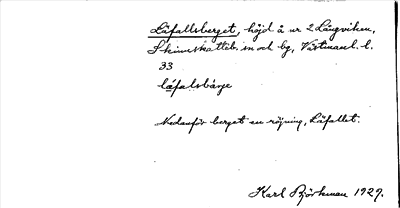 Låfallsberget, höjd å nr 2 Långviken,
Skinnskatteb. sn och bg, Västmanl. l.
33
låfalsbärje
Nedanför berget en röjning, Låfallet.
Karl Björkman 1929.